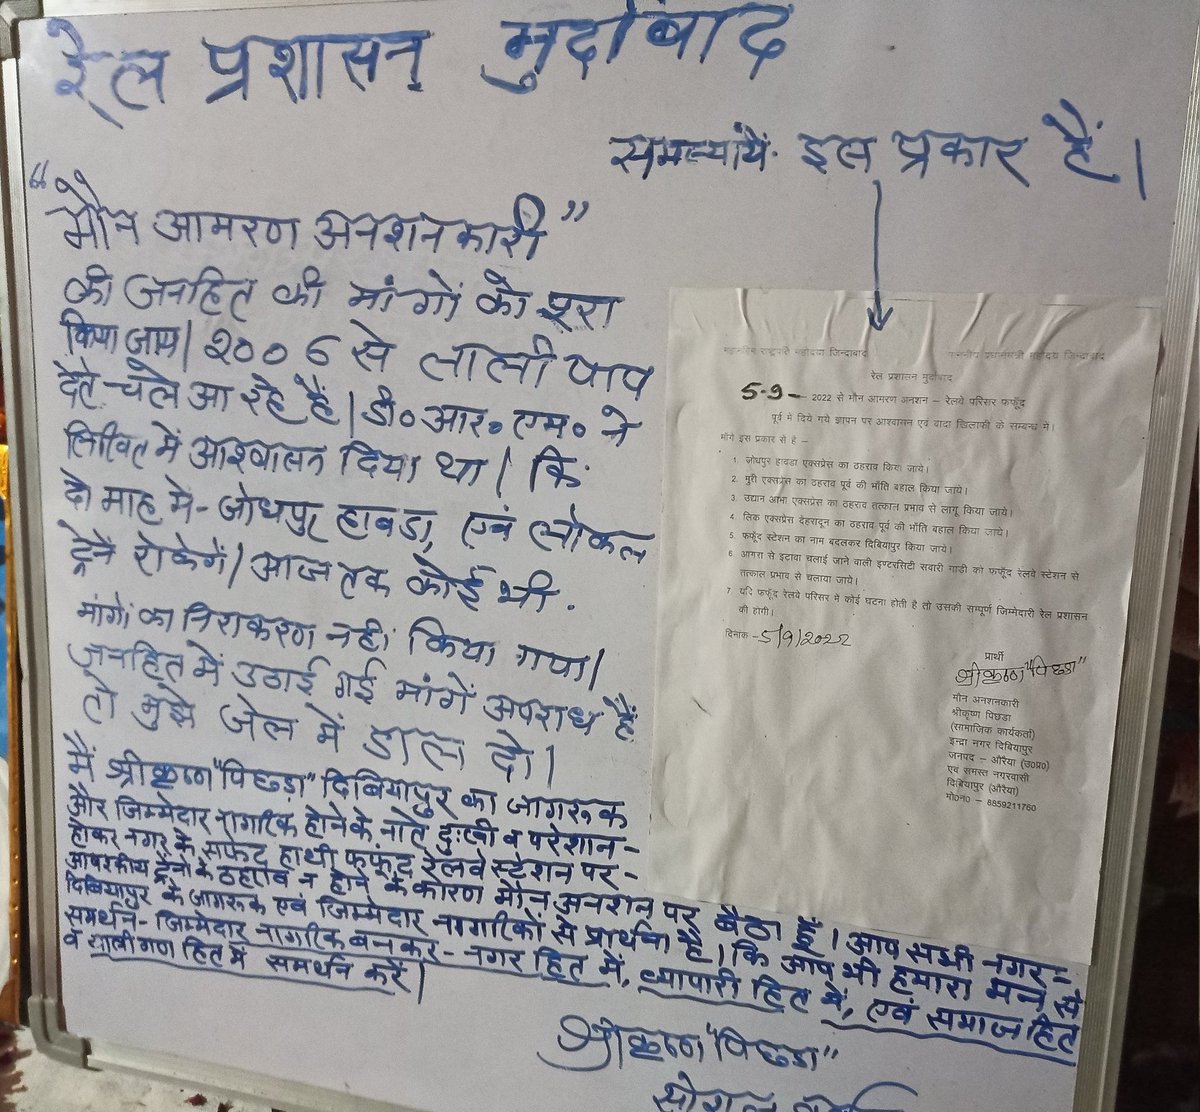 रेल प्रशासन मुर्दाबाद
समस्यायें इस प्रकार हैं।
"मौन आमरण अनशनकारी"
की जनहित की मांगों को पूरा
किया जाय। 2006 से लाली पाप
देते चले आ रहे हैं। डी० आर० एम० ने
लिखित में आश्वासन दिया था। कि
दो माह में- जोधपुर हावडा, एवं लोकल
ट्रेनें रोकेगें। आज तक कोई भी.
मांगों का निराकरण नहीं किया गया।
जनहित में उठाई गई मांगें अपराध हैं
तो मुझे जेल में डाल दो।
मैं श्रीकृष्ण "पिछड़ा" दिबियापुर का जागरूक
और जिम्मेदार नागरिक होने के नाते दुःखी व परेशान-
होकर नगर के सफेद हाथी फफूंद रेलवे स्टेशन पर-
ट्रेनों के ठहराव न होने के कारण मौन अनशन पर बैठा हूँ। आप सभी नगर-
दिबियापुर के जागरूक एवं जिम्मेदार नागरिकों से प्रार्थना है। कि आप भी हमारा मन से
समर्थन- जिम्मेदार नागरिक बनकर- नगर हित में, व्यापारी हित में, एवं समाज हित
व यात्रीगण हित में समर्थन करें।
श्रीकृष्ण "पिछडा"
महामहिम राष्ट्रपति महोदया जिन्दाबाद माननीय प्रधानमंत्री महोदय जिन्दाबाद
रेल प्रशासन मुर्दाबाद
5-9- 2022 से मौन आमरण अनशन – रेलवे परिसर फफूँद
पूर्व में दिये गये ज्ञापन पर आश्वासन एवं वादा खिलाफी के सम्बन्ध में।
मांगें इस प्रकार से है –
1. जोधपुर हावडा एक्सप्रेस का ठहराव किया जाये।
2. मुरी एक्सप्रेस का ठहराव पूर्व की भाँति बहाल किया जाये।
3. उद्यान आभा एक्सप्रेस का ठहराव तत्काल प्रभाव से लागू किया जाये।
4. लिंक एक्सप्रेस देहरादून का ठहराव पूर्व की भाँति बहाल किया जाये।
5. फफूँद स्टेशन का नाम बदलकर दिबियापुर किया जाये।
6 आगरा से इटावा चलाई जाने वाली इण्टरसिटी सवारी गाडी को फफूँद रेलवे स्टेशन से
तत्काल प्रभाव से चलाया जाये।
7 यदि फफूँद रेलवे परिसर में कोई घटना होती है तो उसकी सम्पूर्ण जिम्मेदारी रेल प्रशासन
की होगी।
दिनांक -5/9/2022
प्रार्थी
श्रीकृष्ण "पिछडा"
मौन अनशनकारी
श्रीकृष्ण पिछडा
(सामाजिक कार्यकर्ता)
इन्द्रा नगर दिबियापुर
जनपद – औरैया (उ०प्र०)
एवं समस्त नगरवासी
दिबियापुर (औरैया)
मो०नं० – 8859211760